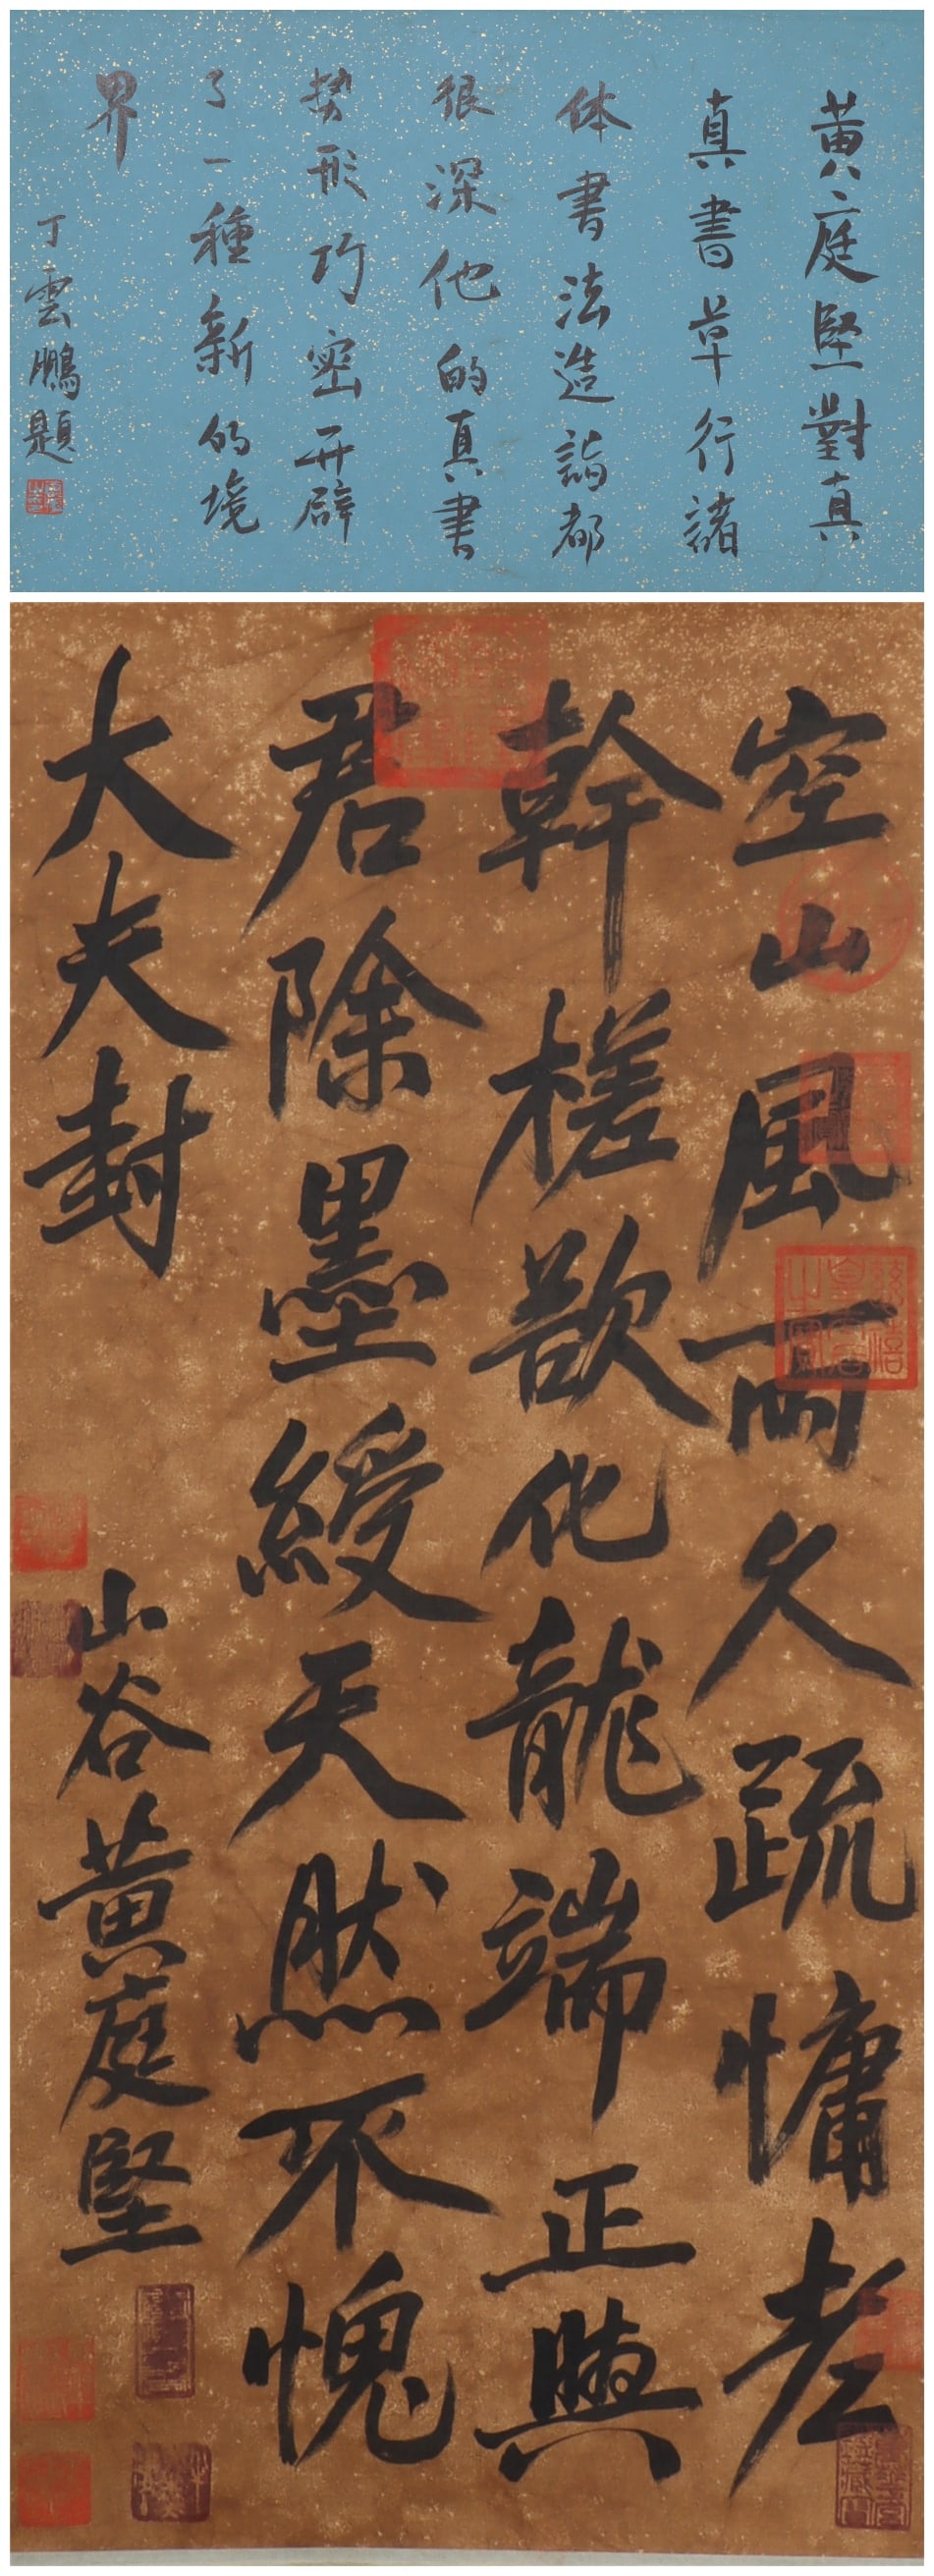 黄庭堅對真
真書草行諸
体書法造詣都
很深他的真書
势形巧密开辟
了一種新的境
界
丁雲鵬題
空山風雨久疏慵老
幹槎欲化龍端正與
君除墨綬天然不愧
大夫封
山谷黄庭堅